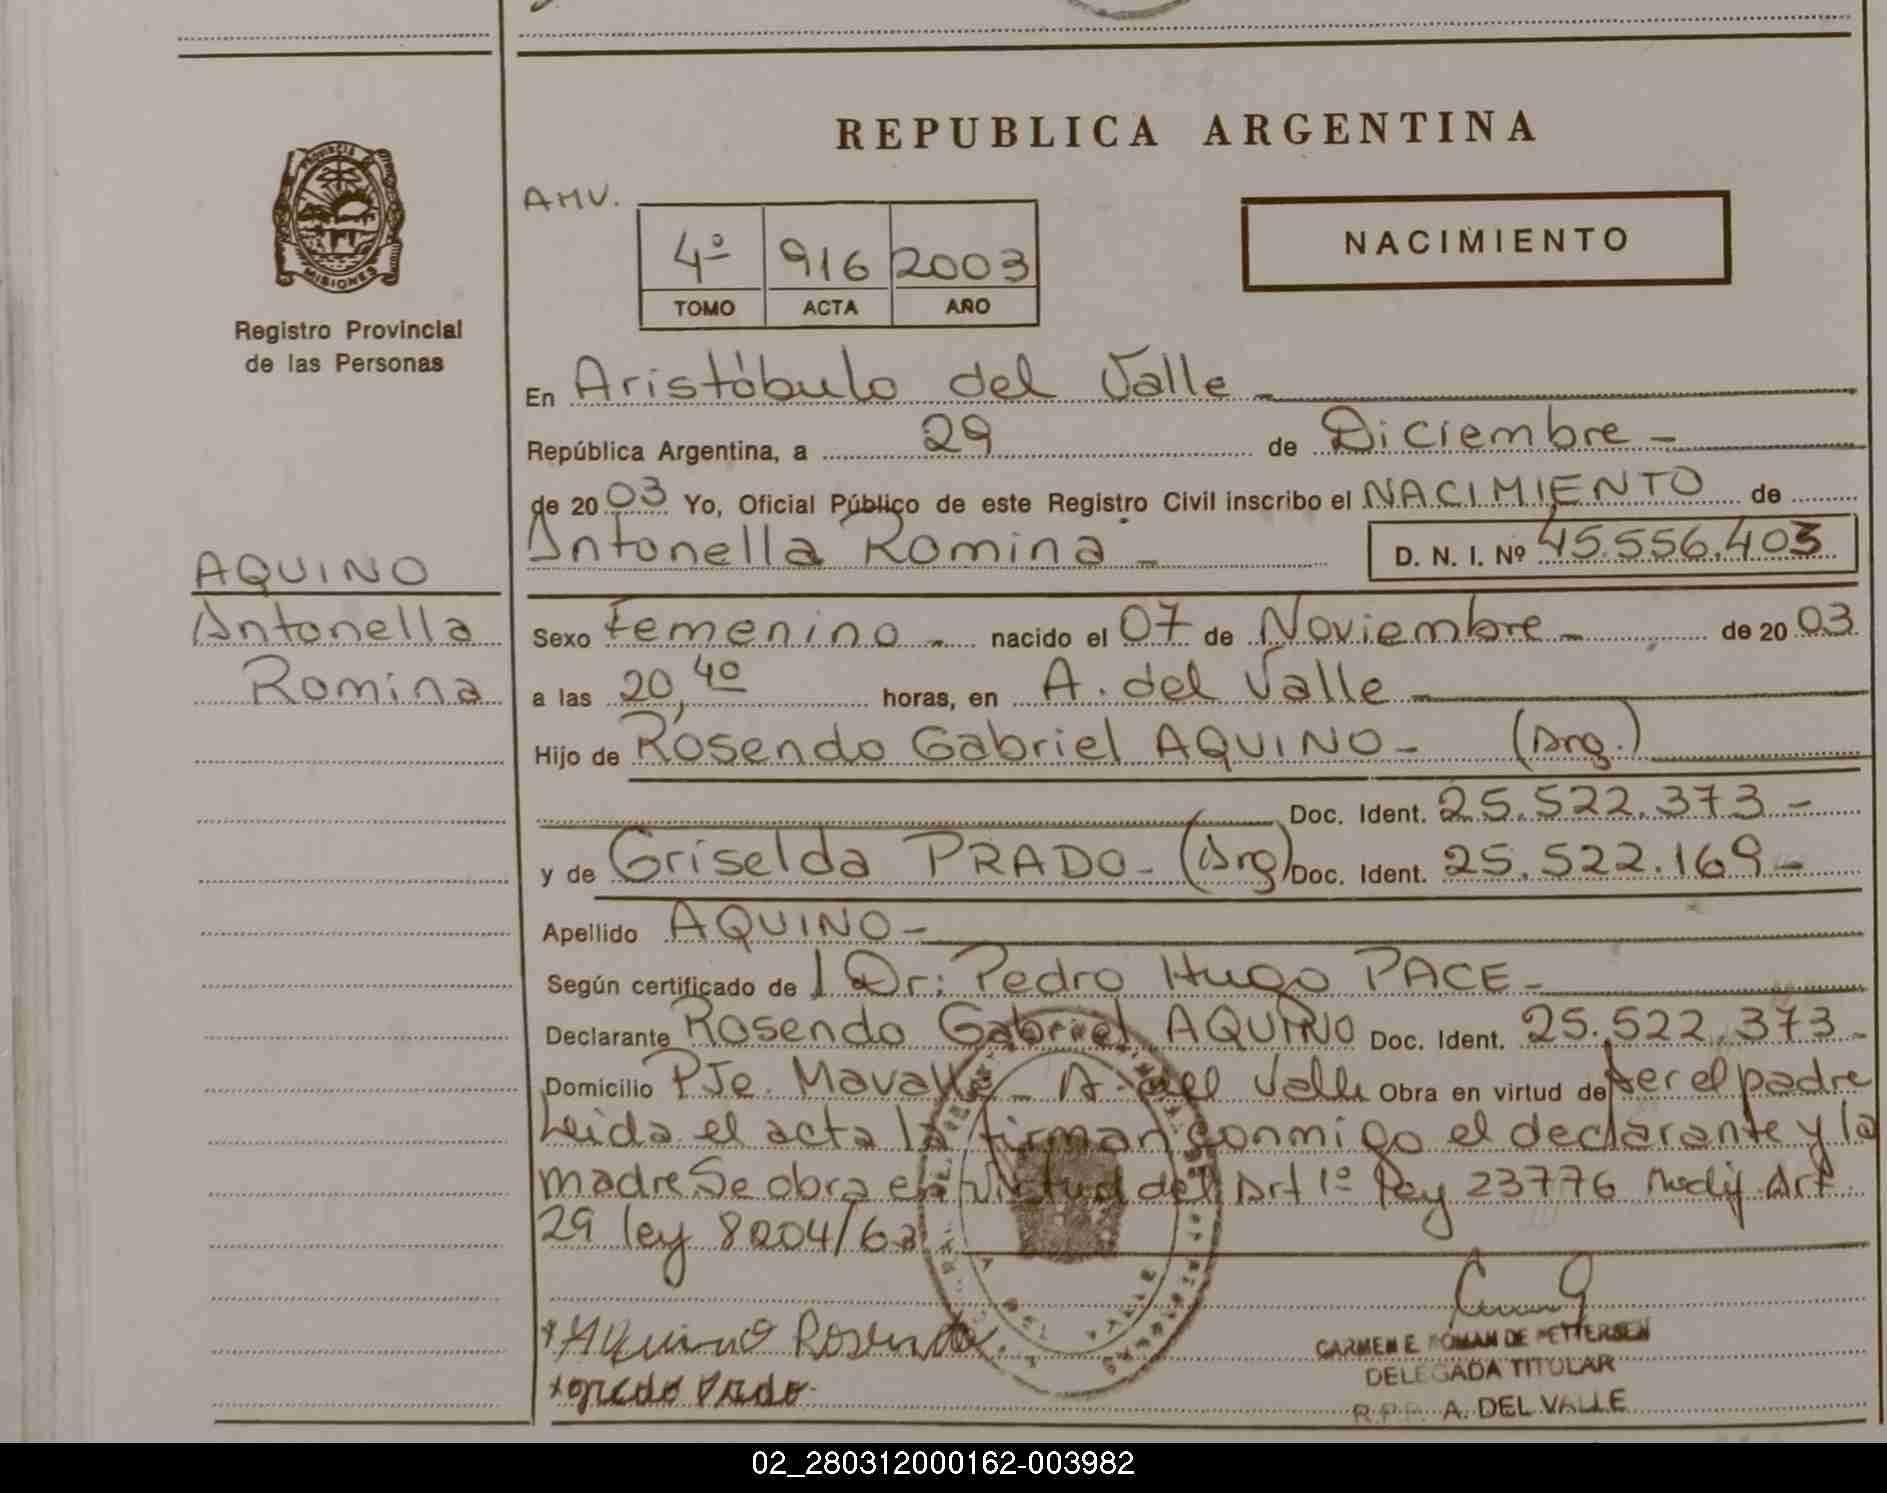 REPUBLICA ARGENTINA
PROVINCIA DE
MISIONES
Registro Provincial
de las Personas
AMV.
4º 916 2003
TOMO ACTA AÑO
NACIMIENTO
En Aristóbulo del Valle -
República Argentina, a 29 de Diciembre -
de 20 03 Yo, Oficial Público de este Registro Civil inscribo el NACIMIENTO de
Antonella Romina - D. N. I. Nº 45.556.403
AQUINO
Antonella
Romina
Sexo Femenino - nacido el 07 de Noviembre - de 20 03
a las 20,40 horas, en A. del Valle -
Hijo de Rosendo Gabriel AQUINO - (Arg.)
Doc. Ident. 25.522.373 -
y de Griselda PRADO - (Arg) Doc. Ident. 25.522.169 -
Apellido AQUINO -
Según certificado de l Dr: Pedro Hugo PACE -
Declarante Rosendo Gabriel AQUINO Doc. Ident. 25.522.373 -
Domicilio PJe. Mavalle - A. del Valle Obra en virtud de ser el padre
Leida el acta la firman conmigo el declarante y la
madre. Se obra en virtud del Art 1º ley 23776 Modif. Art
29 ley 8204/63
Aquino Rosendo.
Prado
CARMEN E. ROMAN DE PETTERSEN
DELEGADA TITULAR
R.P.P. A. DEL VALLE
02_280312000162-003982